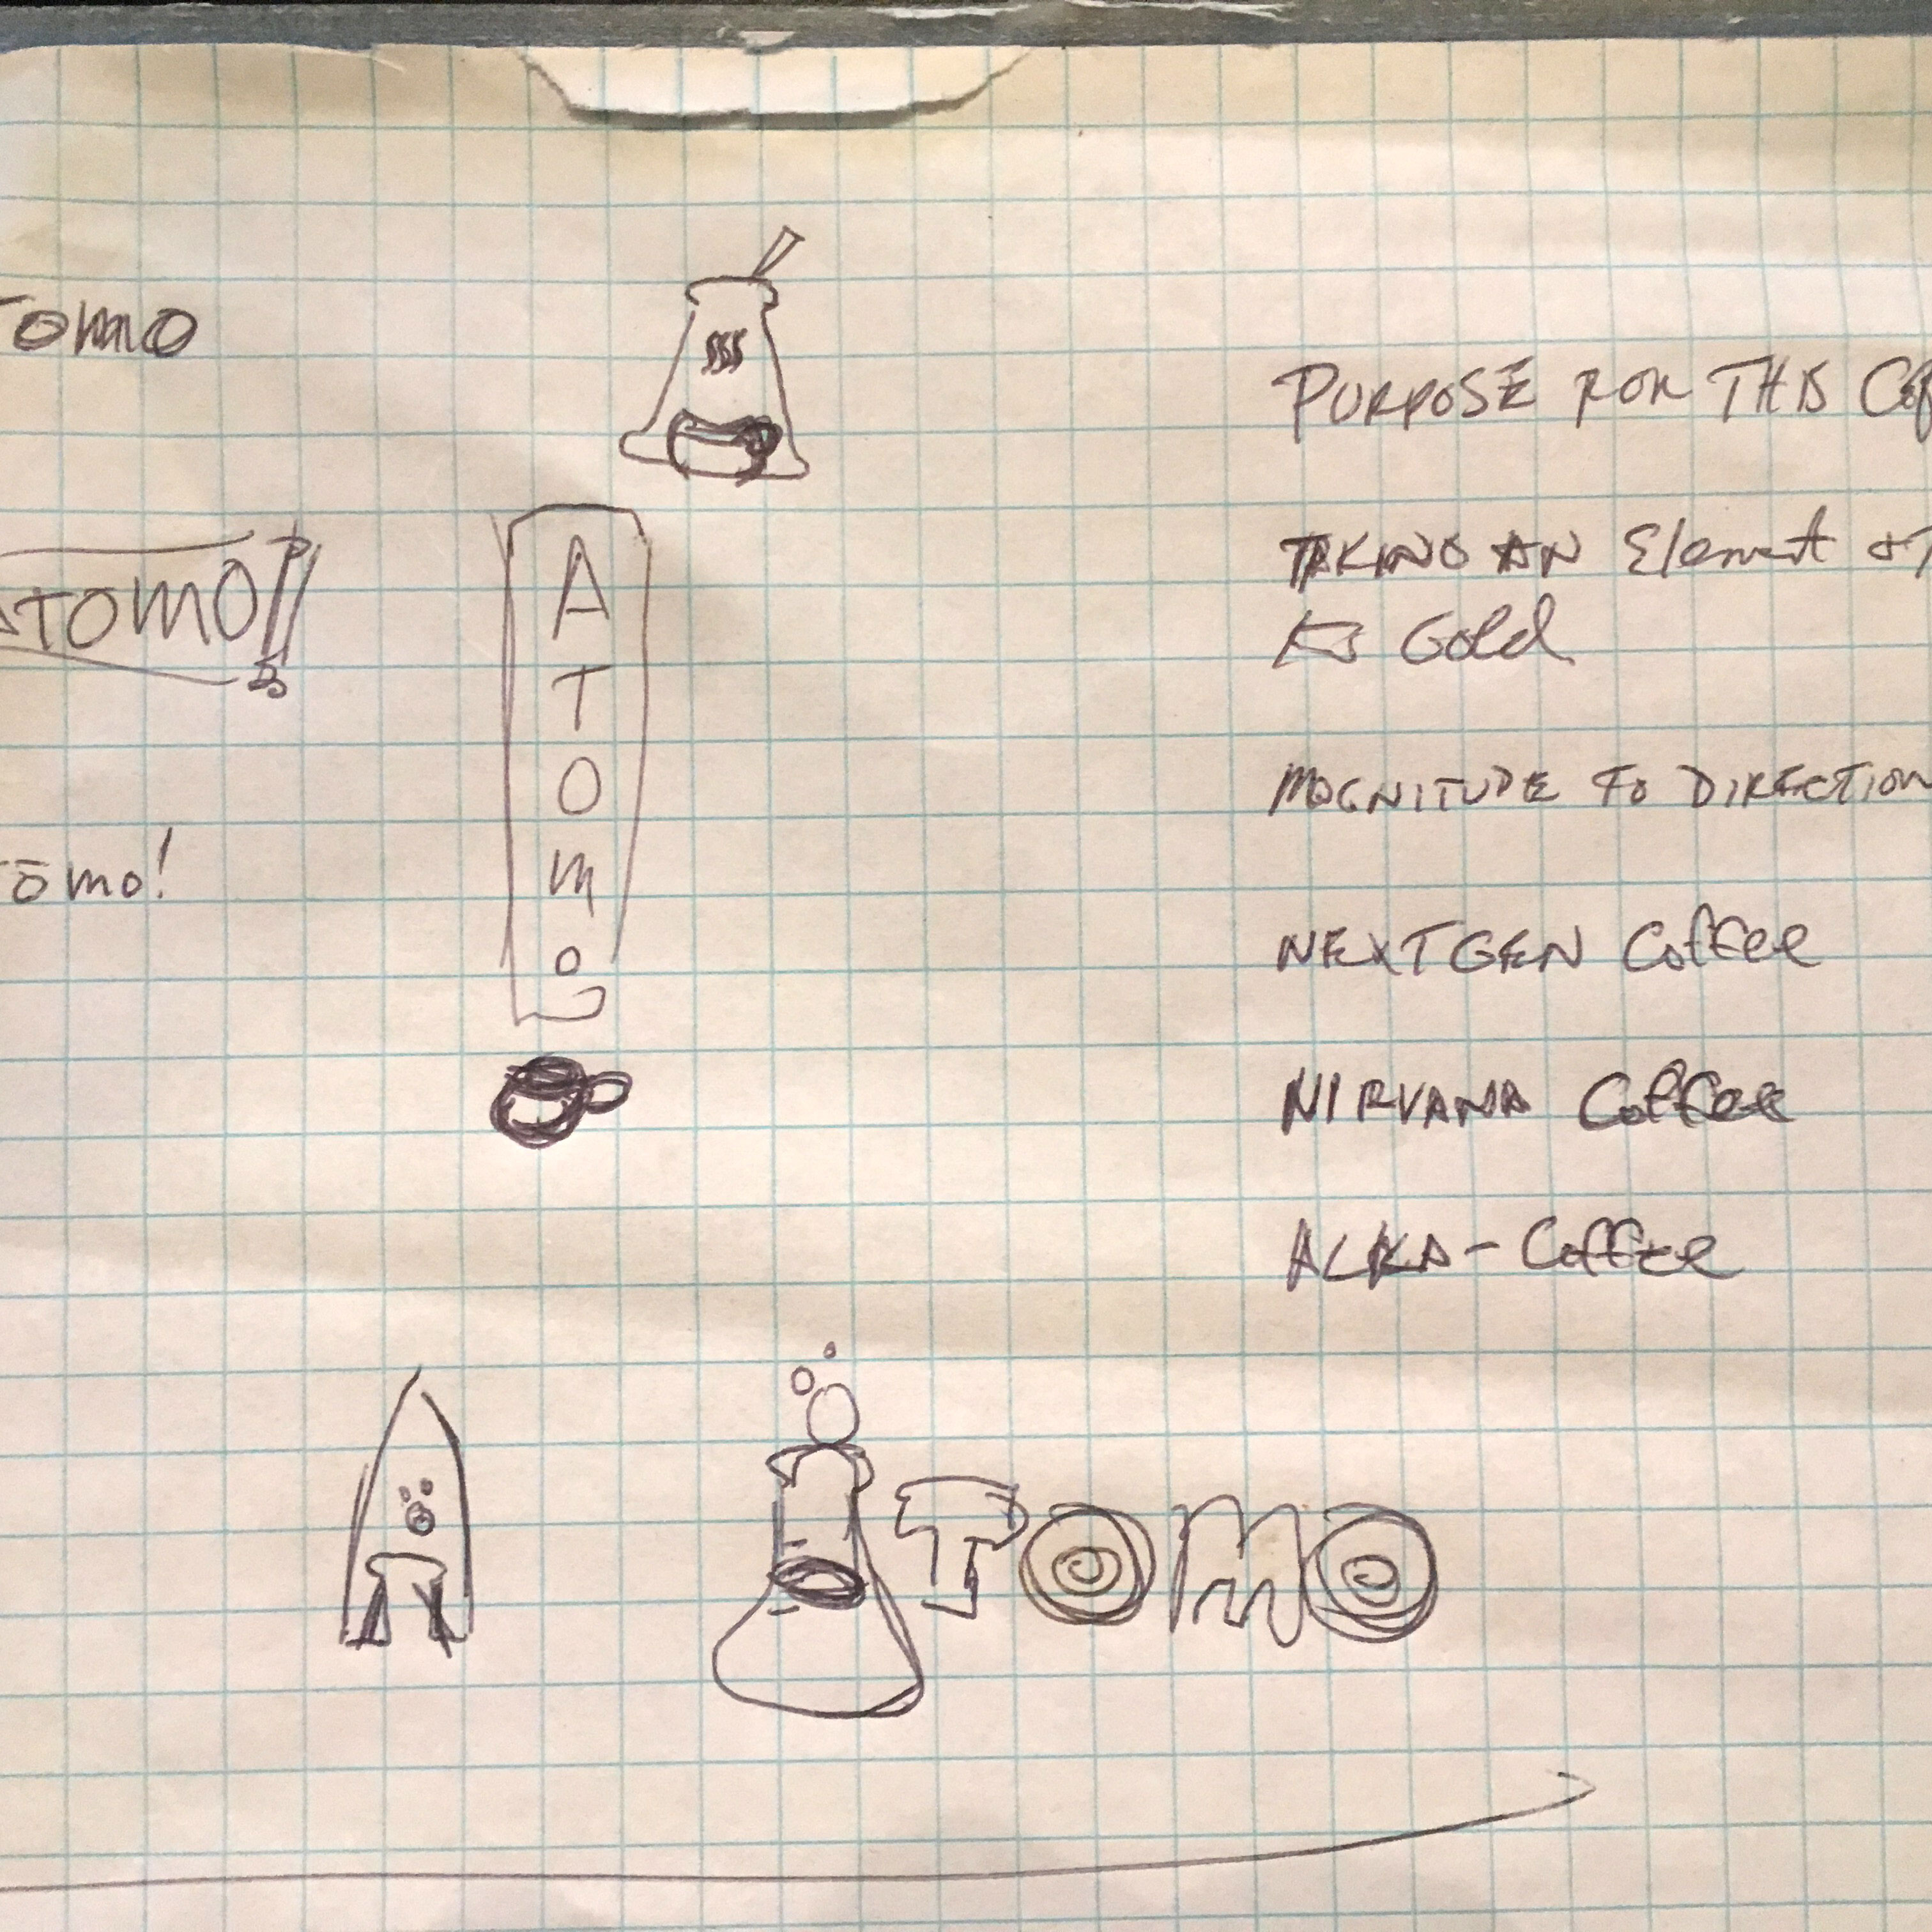 TOMO
PURPOSE FOR THIS COF
TAKING AN Element
As Gold
ATOMO
A
T
O
M
O
MAGNITUDE To DIRECTION
TOMO!
NEXTGEN Coffee
NIRVANA Coffee
ALKA-Coffee
A
TOMO